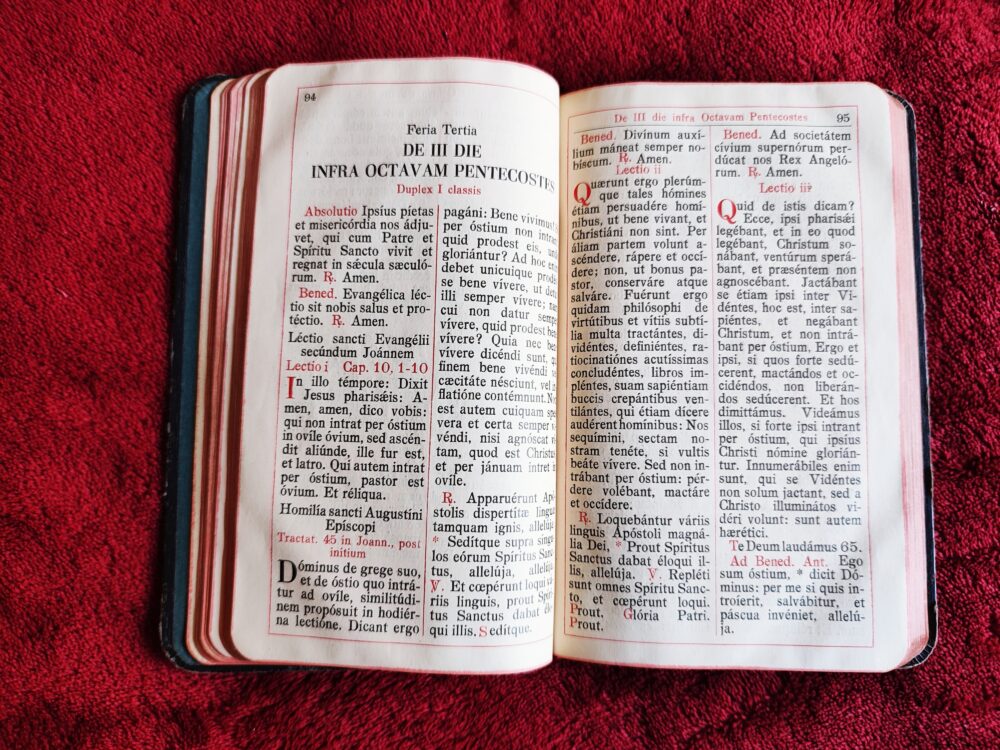 94
Feria Tertia
DE III DIE
INFRA OCTAVAM PENTECOSTES
Duplex I classis
Absolutio Ipsíus píetas
et misericórdia nos ádju-
vet, qui cum Patre et
Spíritu Sancto vivit et
regnat in sǽcula sæculó-
rum. ℟. Amen.
Bened. Evangélica léc-
tio sit nobis salus et pro-
téctio. ℟. Amen.
Léctio sancti Evangélii
secúndum Joánnem
Lectio i Cap. 10, 1-10
In illo témpore: Dixit
Jesus pharisǽis: A-
men, amen, dico vobis:
qui non intrat per óstium
in ovíle óvium, sed ascén-
dit aliúnde, ille fur est,
et latro. Qui autem intrat
per óstium, pastor est
óvium. Et réliqua.
Homilía sancti Augustíni
Epíscopi
Tractat. 45 in Joann., post
initium
Dóminus de grege suo,
et de óstio quo intrá-
tur ad ovíle, similitúdi-
nem propósuit in hodiér-
na lectióne. Dicant ergo
pagáni: Bene vívimus!
per óstium non intrant
quid prodest eis,
gloriántur? Ad hoc
debet unicuíque
bene vívere, ut detur
illi semper vívere;
cui non datur semper
vívere, quid prodest bene
vívere? Quia nec bene
vívere dicéndi sunt, qui
finem bene vivéndi vel
cæcitáte nésciunt, vel
flatióne contémnunt.
est autem cuíquam spes
vera et certa semper
véndi, nisi agnóscat
tam, quod est Christus
et per jánuam intret in
ovíle.
℟. Apparuérunt Apó-
stolis dispertítæ linguæ
tamquam ignis, allelúja
* Sedítque supra síngu-
los eórum Spíritus Sanc-
tus, allelúja, allelúja.
℣. Et cœpérunt loqui vá-
riis linguis, prout Spíri-
tus Sanctus dabat éloqui
qui illis. Sedítque.
De III die infra Octavam Pentecostes 95
Bened. Divínum auxí-
lium máneat semper no-
bíscum. ℟. Amen.
Lectio ii
Quaerunt ergo plerúm-
que tales hómines
étiam persuadére homí-
nibus, ut bene vivant, et
Christiáni non sint. Per
áliam partem volunt a-
scéndere, rápere et occí-
dere; non, ut bonus pa-
stor, conserváre atque
salváre. Fuérunt ergo
quidam philósophi de
virtútibus et vítiis subtí-
lia multa tractántes, di-
vidéntes, definiéntes, ra-
tiocinatiónes acutíssimas
concludéntes, libros im-
pléntes, suam sapiéntiam
buccis crepántibus ven-
tilántes, qui étiam dícere
audérent homínibus: Nos
sequímini, sectam no-
stram tenéte, si vultis
beáte vívere. Sed non in-
trábant per óstium: pér-
dere volébant, mactáre
et occídere.
℟. Loquebántur váriis
linguis Apóstoli magná-
lia Dei, * Prout Spíritus
Sanctus dabat éloqui il-
lis, allelúja. ℣. Repléti
sunt omnes Spíritu Sanc-
to, et cœpérunt loqui.
Prout. Glória Patri.
Prout.
Bened. Ad societátem
cívium supernórum per-
dúcat nos Rex Angeló-
rum. ℟. Amen.
Lectio iii
Quid de istis dicam?
Ecce, ipsi pharisǽi
legébant, et in eo quod
legébant, Christum so-
nábant, ventúrum sperá-
bant, et præséntem non
agnoscébant. Jactábant
se étiam ipsi inter Vi-
déntes, hoc est, inter sa-
piéntes, et negábant
Christum, et non intrá-
bant per óstium, Ergo et
ipsi, si quos forte sedú-
cerent, mactándos et oc-
cidéndos, non liberán-
dos sedúcerent. Et hos
dimittámus. Videámus
illos, si forte ipsi intrant
per óstium, qui ipsíus
Christi nómine glorián-
tur. Innumerábiles enim
sunt, qui se Vidéntes
non solum jactant, sed a
Christo illuminátos vi-
déri volunt: sunt autem
hærétici.
Te Deum laudámus 65.
Ad Bened. Ant. Ego
sum óstium, * dicit Dó-
minus: per me si quis in-
troíerit, salvábitur, et
páscua invéniet, allelú-
ja.